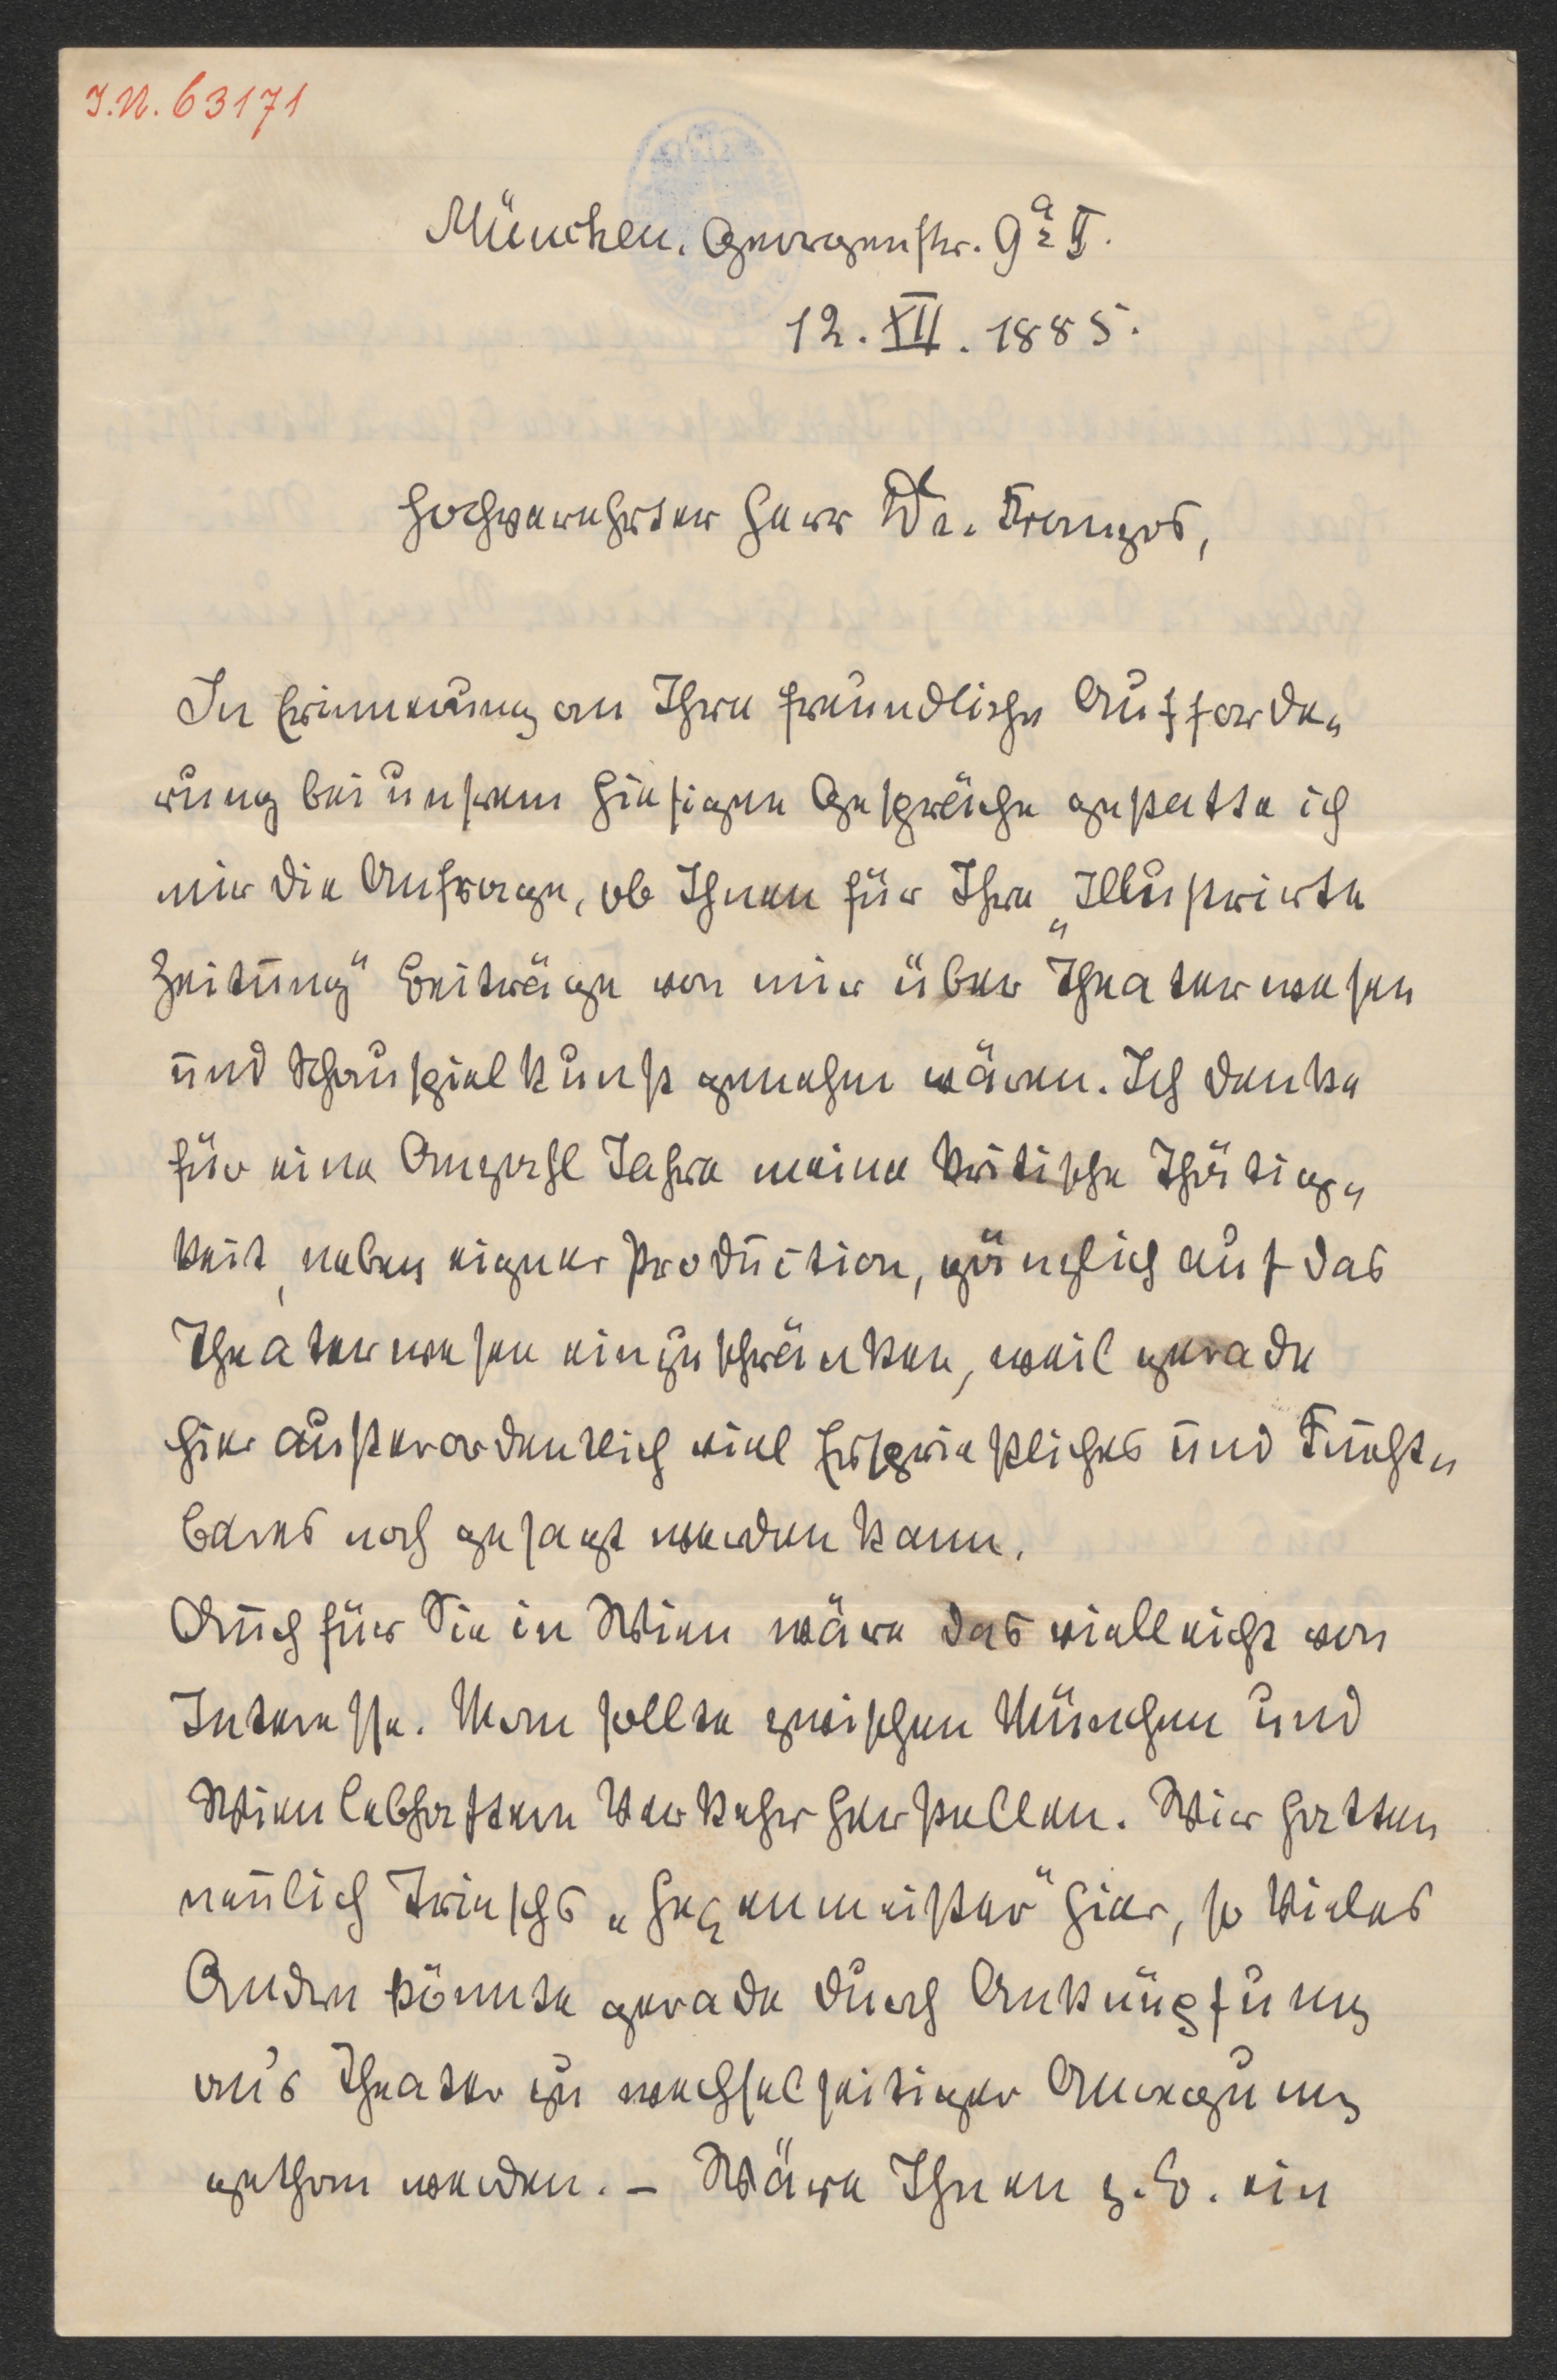 I.N. 63171
München. Georgenstr. 9 a/2 II.
12. XII. 1885.
Hochverehrter Herr Dr. Franzos,
In Erinnerung an Ihre freundliche Aufforde„
rung bei unsrem hiesigen Gespräche gestatte ich
mir die Anfrage, ob Ihnen für Ihre „Illustrirte
Zeitung" Beiträge von mir über Theaterwesen
und Schauspielkunst genehm wären. Ich denke
für eine Anzahl Jahre meine kritische Thätig„
keit, neben eigner Production, gänzlich auf das
Theaterwesen einzuschränken, weil gerade
hier außerordentlich viel Ersprießliches und Frucht„
bares noch gesagt werden kann.
Auch für Sie in Wien wäre das vielleicht von
Interesse. Man sollte zwischen München und
Wien lebhaftern Verkehr herstellen. Wir hatten
neulich Trieschs „Hexenmeister" hier, so Vieles
Andre könnte gerade durch Anknüpfung
an's Theater zu wechselseitiger Anregung
gethan werden. – Wäre Ihnen z. B. ein